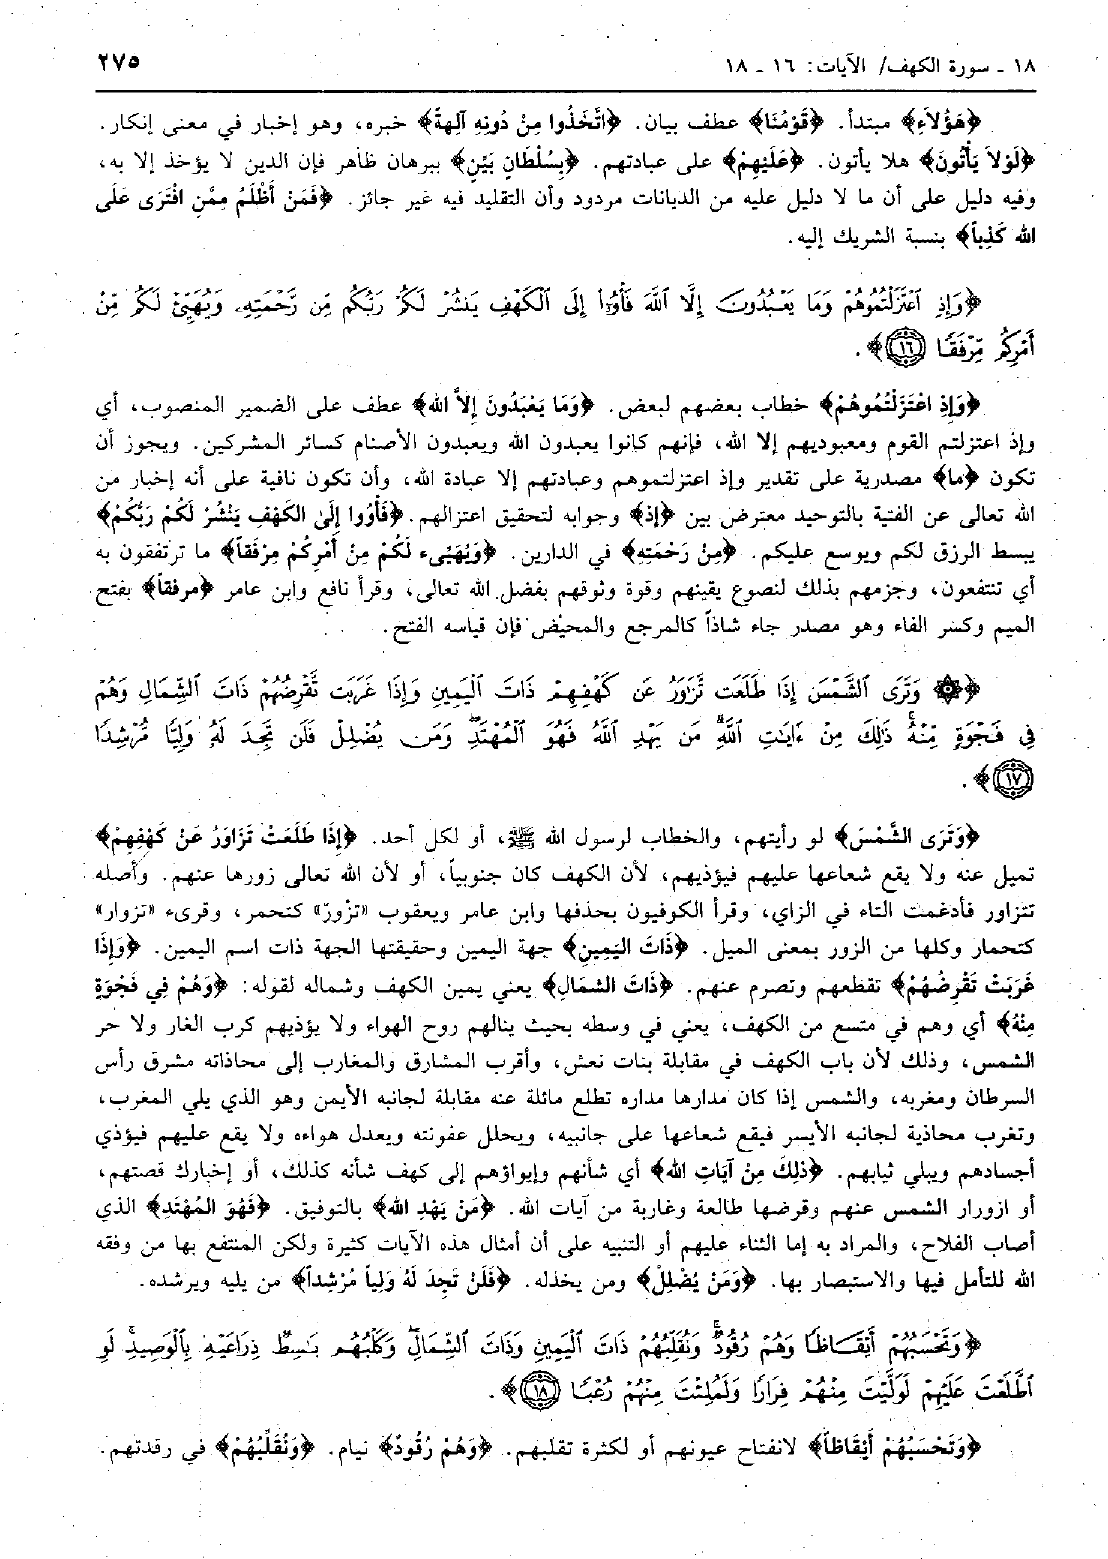 ١٨ ـ سورة الكهف/ الآيات: ١٦ ـ ١٨
٢٧٥
﴿هَؤُلاَءِ﴾ مبتدأ. ﴿قَوْمُنَا﴾ عطف بيان. ﴿اتَّخَذُوا مِنْ دُونِهِ آلِهةً﴾ خبره، وهو إخبار في معنى إنكار.
﴿لَوْلاَ يَأْتُونَ﴾ هلا يأتون. ﴿عَلَيْهِمْ﴾ على عبادتهم. ﴿بِسُلْطَانٍ بَيّنٍ﴾ ببرهان ظاهر فإن الدين لا يؤخذ إلا به،
وفيه دليل على أن ما لا دليل عليه من الديانات مردود وأن التقليد فيه غير جائز. ﴿فَمَنْ أَظْلَمُ مِمَّنِ افْتَرَى عَلَى
الله كَذِباً﴾ بنسبة الشريك إليه.
﴿وَإِذِ ٱعْتَزَلْتُمُوهُمْ وَمَا يَعْبُدُونَ إِلَّا ٱللَّهَ فَأْوُۥٓا۟ إِلَى ٱلْكَهْفِ يَنشُرْ لَكُمْ رَبُّكُم مِّن رَّحْمَتِهِۦ وَيُهَيِّئْ لَكُم مِّنْ
أَمْرِكُم مِّرْفَقًا ﴿١٦﴾﴾.
﴿وَإِذِ اعْتَزَلْتُمُوهُمْ﴾ خطاب بعضهم لبعض. ﴿وَمَا يَعْبُدُونَ إِلاَّ الله﴾ عطف على الضمير المنصوب، أي
وإذ اعتزلتم القوم ومعبوديهم إلا الله، فإنهم كانوا يعبدون الله ويعبدون الأصنام كسائر المشركين. ويجوز أن
تكون ﴿ما﴾ مصدرية على تقدير وإذ اعتزلتموهم وعبادتهم إلا عبادة الله، وأن تكون نافية على أنه إخبار من
الله تعالى عن الفتية بالتوحيد معترض بين ﴿إذ﴾ وجوابه لتحقيق اعتزالهم. ﴿فَأْوُوا إِلَىٰ الكَهْفِ يَنْشُرْ لَكُمْ رَبُّكُمْ﴾
يبسط الرزق لكم ويوسع عليكم. ﴿مِنْ رَحْمَتِهِ﴾ في الدارين. ﴿وَيُهَيِّىء لَكُمْ مِنْ أَمْرِكُمْ مِرْفَقاً﴾ ما ترتفقون به
أي تنتفعون، وجزمهم بذلك لنصوع يقينهم وقوة وثوقهم بفضل الله تعالى، وقرأ نافع وابن عامر ﴿مرفقاً﴾ بفتح
الميم وكسر الفاء وهو مصدر جاء شاذاً كالمرجع والمحيْض فإن قياسه الفتح.
﴿۞ وَتَرَى ٱلشَّمْسَ إِذَا طَلَعَت تَّزَٰوَرُ عَن كَهْفِهِمْ ذَاتَ ٱلْيَمِينِ وَإِذَا غَرَبَت تَّقْرِضُهُمْ ذَاتَ ٱلشِّمَالِ وَهُمْ
فِى فَجْوَةٍ مِّنْهُ ۚ ذَٰلِكَ مِنْ ءَايَٰتِ ٱللَّهِ ۗ مَن يَهْدِ ٱللَّهُ فَهُوَ ٱلْمُهْتَدِ ۖ وَمَن يُضْلِلْ فَلَن تَجِدَ لَهُۥ وَلِيًّا مُّرْشِدًا
﴿١٧﴾﴾.
﴿وَتَرَى الشَّمْسَ﴾ لو رأيتهم، والخطاب لرسول الله ﷺ، أو لكل أحد. ﴿إِذَا طَلَعَتْ تَزَاوَرُ عَنْ كَهْفِهِمْ﴾
تميل عنه ولا يقع شعاعها عليهم فيؤذيهم، لأن الكهف كان جنوبياً، أو لأن الله تعالى زورها عنهم. وأصله
تتزاور فأدغمت التاء في الزاي، وقرأ الكوفيون بحذفها وابن عامر ويعقوب «تزورّ» كتحمر، وقرىء «تزوار»
كتحمار وكلها من الزور بمعنى الميل. ﴿ذَاتَ اليَمِينِ﴾ جهة اليمين وحقيقتها الجهة ذات اسم اليمين. ﴿وَإِذَا
غَرَبَتْ تَقْرِضُهُمْ﴾ تقطعهم وتصرم عنهم. ﴿ذَاتَ الشمَالِ﴾ يعني يمين الكهف وشماله لقوله: ﴿وَهُمْ فِي فَجْوَةٍ
مِنْهُ﴾ أي وهم في متسع من الكهف، يعني في وسطه بحيث ينالهم روح الهواء ولا يؤذيهم كرب الغار ولا حر
الشمس، وذلك لأن باب الكهف في مقابلة بنات نعش، وأقرب المشارق والمغارب إلى محاذاته مشرق رأس
السرطان ومغربه، والشمس إذا كان مدارها مداره تطلع مائلة عنه مقابلة لجانبه الأيمن وهو الذي يلي المغرب،
وتغرب محاذية لجانبه الأيسر فيقع شعاعها على جانبيه، ويحلل عفونته ويعدل هواءه ولا يقع عليهم فيؤذي
أجسادهم ويبلي ثيابهم. ﴿ذلِكَ مِنْ آيَاتِ الله﴾ أي شأنهم وإيواؤهم إلى كهف شأنه كذلك، أو إخبارك قصتهم،
أو ازورار الشمس عنهم وقرضها طالعة وغاربة من آيات الله. ﴿مَنْ يَهْدِ الله﴾ بالتوفيق. ﴿فَهُوَ المُهْتَدِ﴾ الذي
أصاب الفلاح، والمراد به إما الثناء عليهم أو التنبيه على أن أمثال هذه الآيات كثيرة ولكن المنتفع بها من وفقه
الله للتأمل فيها والاستبصار بها. ﴿وَمَنْ يُضْلِلْ﴾ ومن يخذله. ﴿فَلَنْ تَجِدَ لَهُ وَلِياً مُرْشِداً﴾ من يليه ويرشده.
﴿وَتَحْسَبُهُمْ أَيْقَاظًا وَهُمْ رُقُودٌ ۚ وَنُقَلِّبُهُمْ ذَاتَ ٱلْيَمِينِ وَذَاتَ ٱلشِّمَالِ ۖ وَكَلْبُهُم بَٰسِطٌ ذِرَاعَيْهِ بِٱلْوَصِيدِ ۚ لَوِ
ٱطَّلَعْتَ عَلَيْهِمْ لَوَلَّيْتَ مِنْهُمْ فِرَارًا وَلَمُلِئْتَ مِنْهُمْ رُعْبًا ﴿١٨﴾﴾.
﴿وَتَحْسَبُهُمْ أَيْقَاظاً﴾ لانفتاح عيونهم أو لكثرة تقلبهم. ﴿وَهُمْ رُقُودٌ﴾ نيام. ﴿وَنُقَلِّبُهُمْ﴾ في رقدتهم.